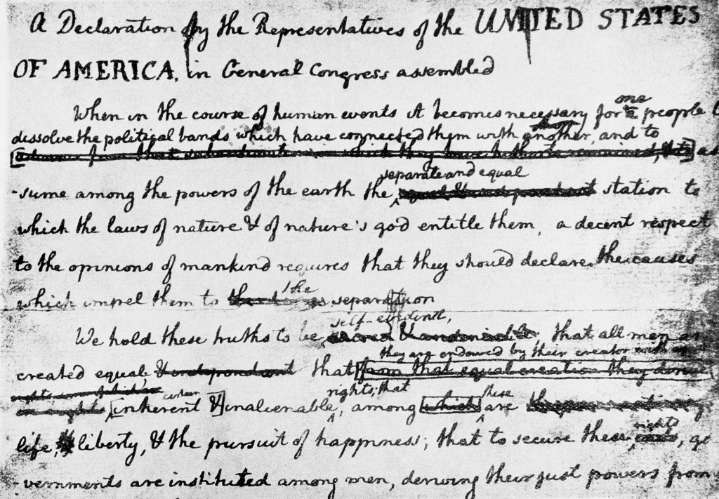 A Declaration by the Representatives of the UNITED STATES
OF AMERICA, in General Congress assembled
When in the course of human events it becomes necessary for one people
dissolve the political bands which have connected them with another, and to
as
separate and equal
-sume among the powers of the earth the station to
which the laws of nature & of nature's god entitle them, a decent respect
to the opinions of mankind requires that they should declare the causes
which impel them to the separation
self-evident,
We hold these truths to be sacred & undeniable that all men
they are endowed by their creator with
created equal & independent that from that equal creation they derive
rights; that
inherent & inalienable, among which these are
life, liberty, & the pursuit of happiness; that to secure these rights, go
-vernments are instituted among men, deriving their just powers from